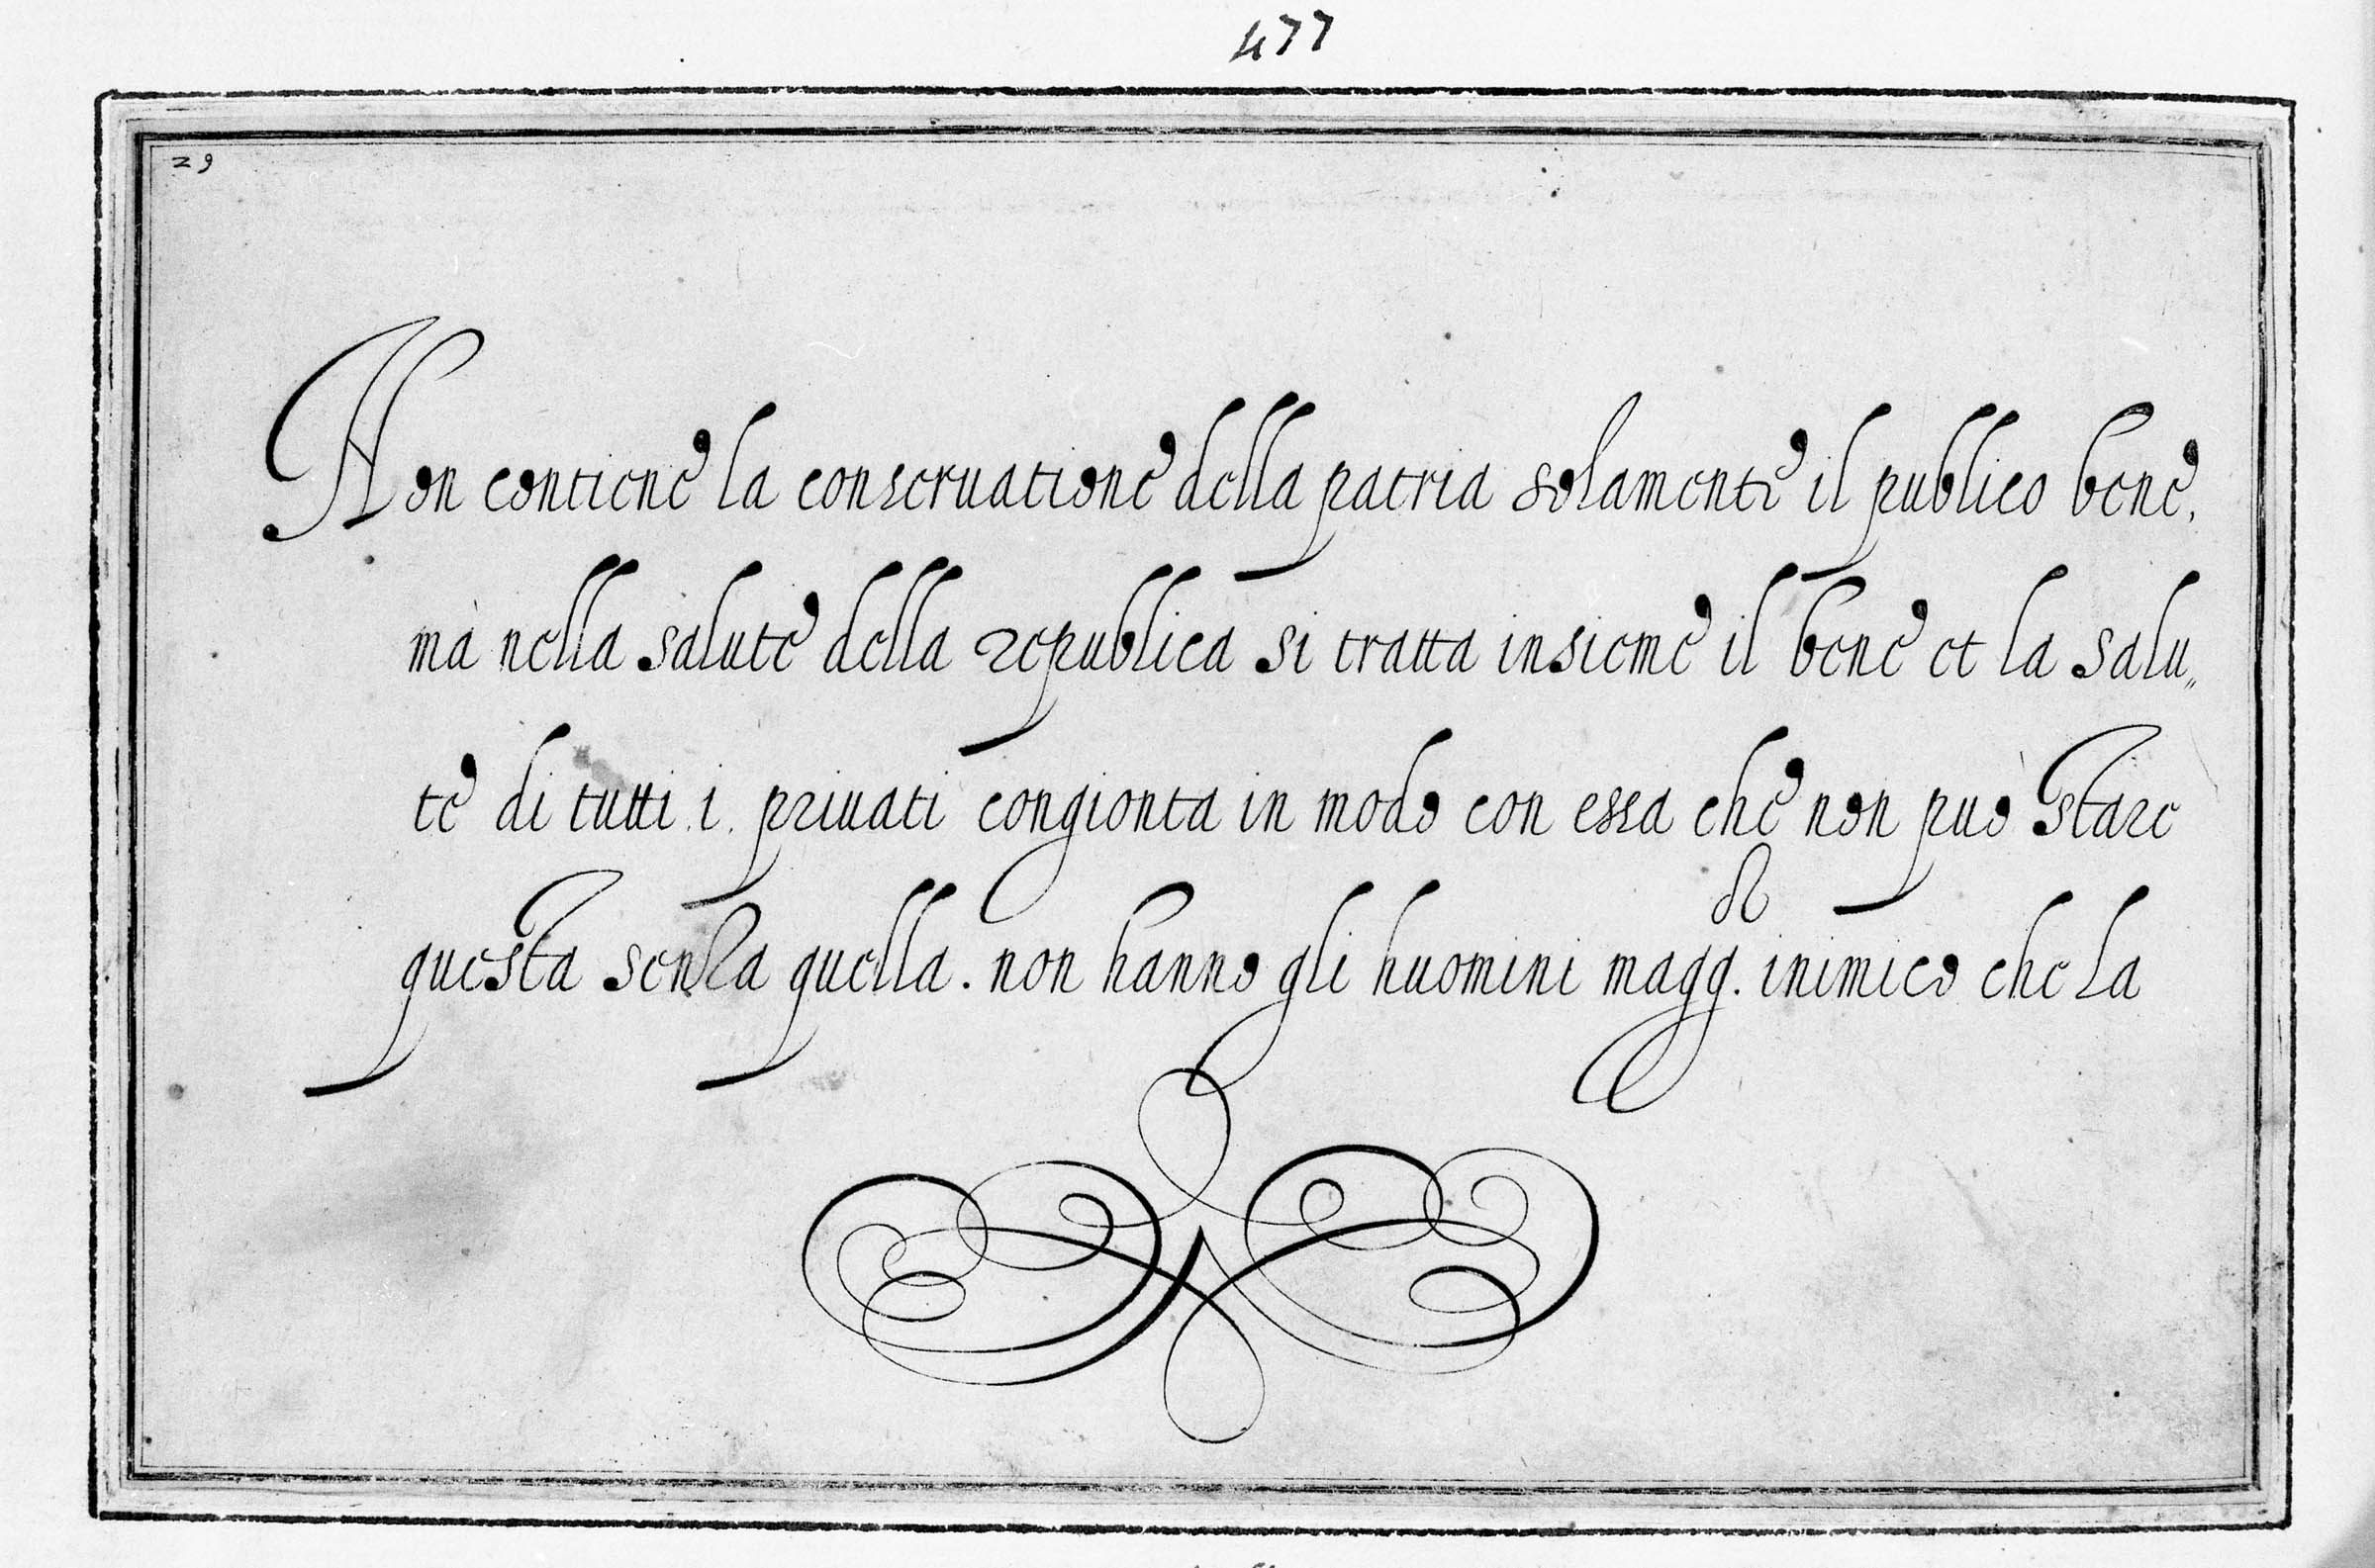 477
29
Non contiene la conseruatione della patria solamente il publico bene,
mà nella salute della republica si tratta insieme il bene et la salu„
te di tutti .i. priuati congionta in modo con essa che non può stare
questa senza quella. non hanno gli huomini magg.re inimico che la